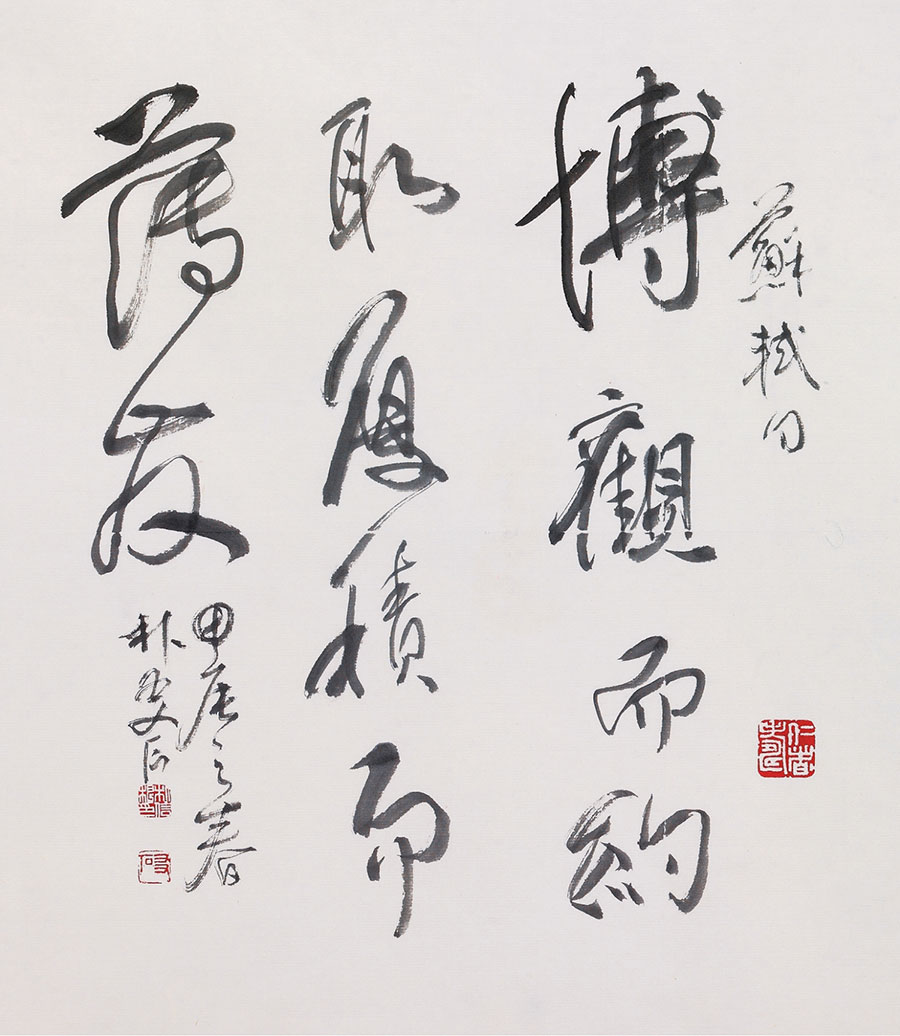 蘇軾句
博觀而約
取厚積而
薄發
甲辰之春
朴
仁者壽